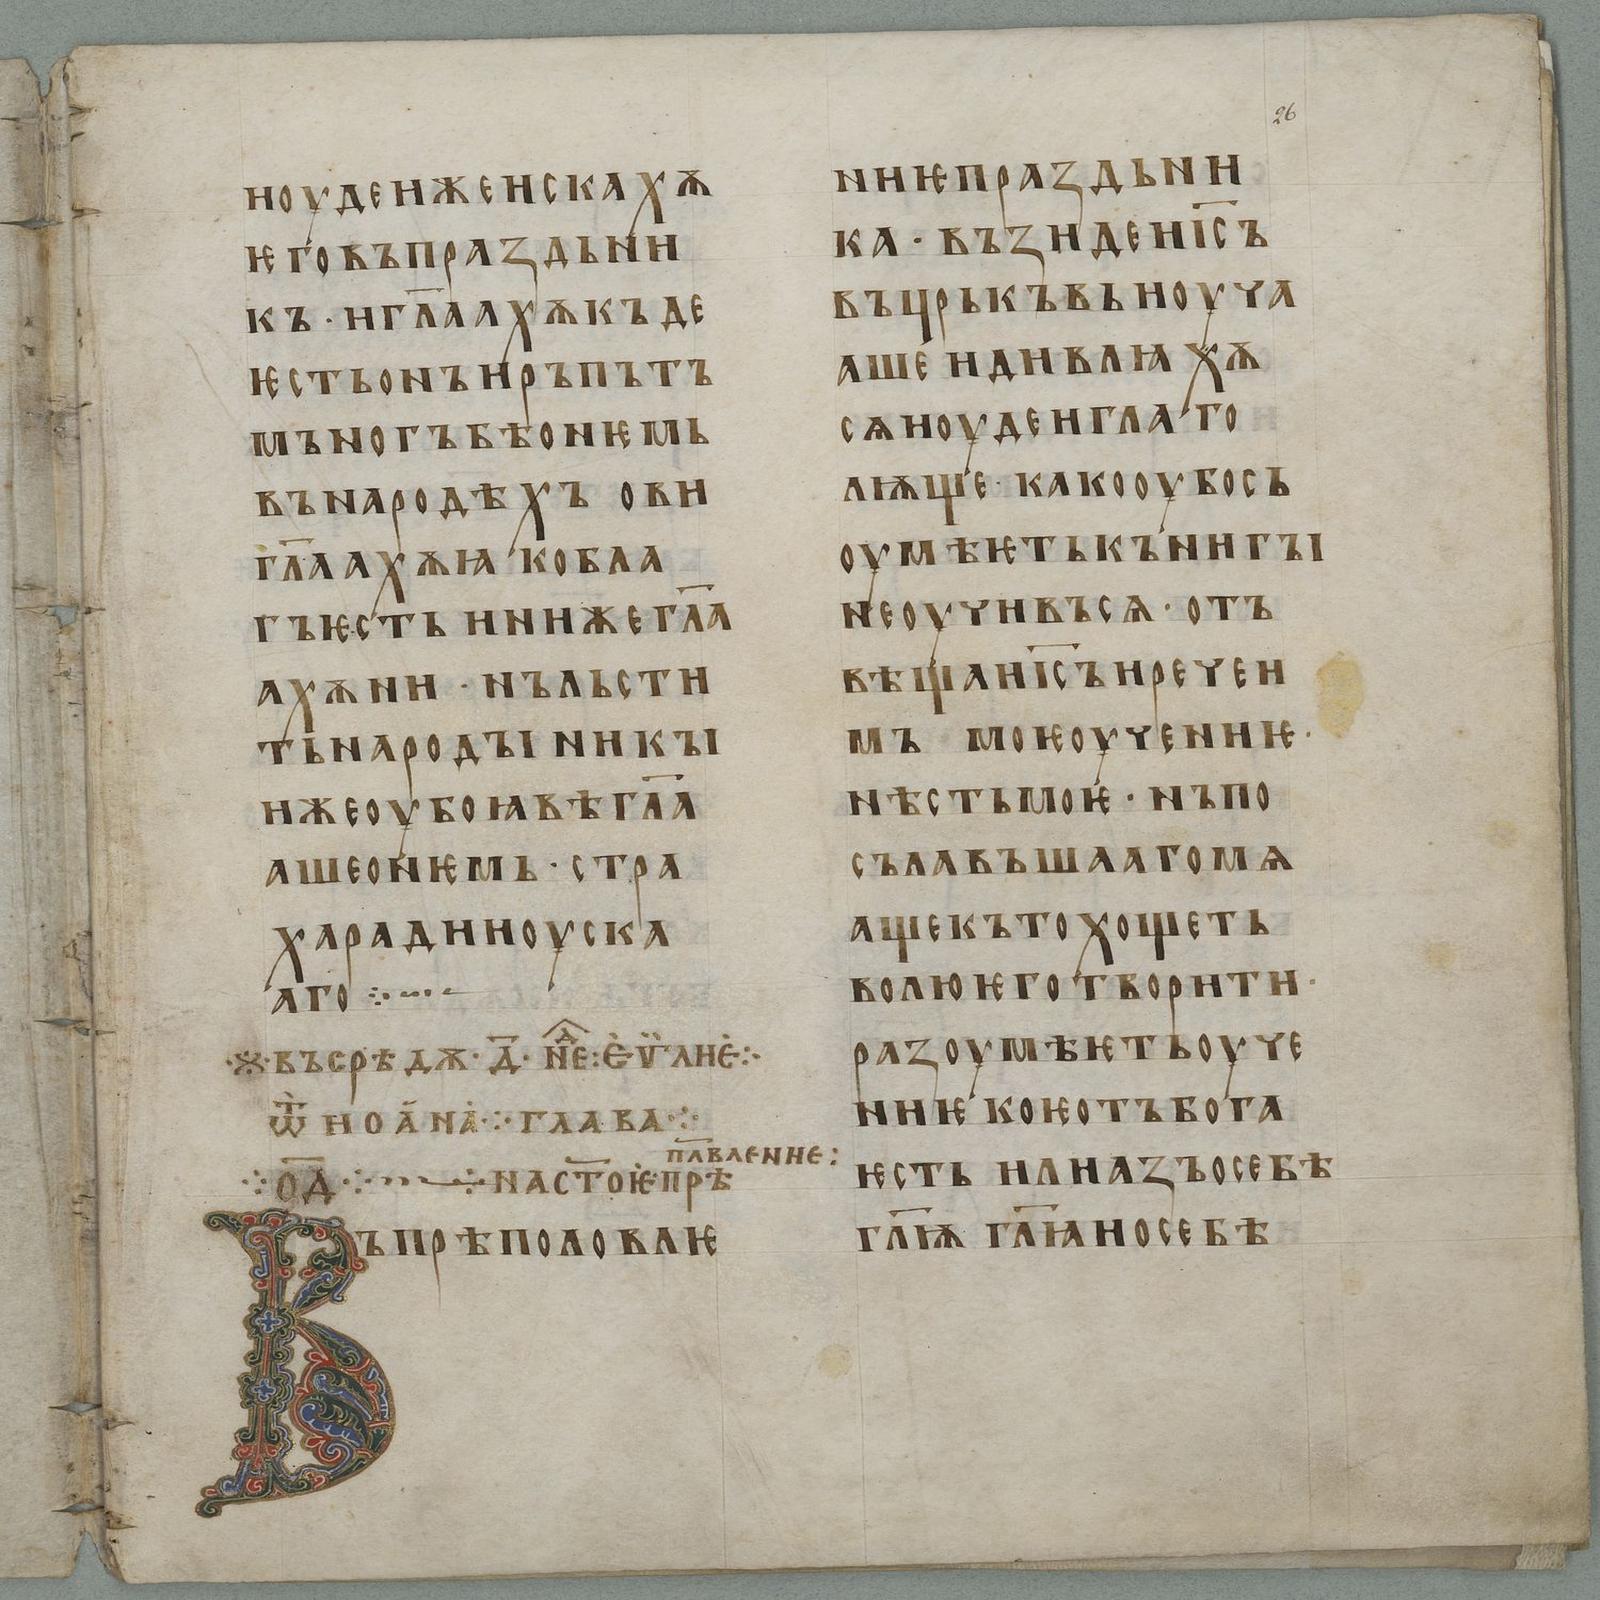 26
ноудеижеискахѫ
ѥговъпраздьни
къ · иг҃лаахѫкъде
ѥстьонъирътътъ
мъногъбѣонѥмь
вънародѣхъ ови
гл҃аахѫꙗкобла
гъѥсть ииниже гл҃а
ахѫни · нъльсти
тьнародꙑ никꙑ
ижеоубоꙗвѣгл҃а
ашеонѥмь · стра
харадииоуска
аго
въсрѣдѫ · д҃ · не҃д : еѵ҃лие
ѿ иоана · глава
о҃д настоѥ прѣ
пл҃вление :
Въпрѣполовлѥ
ниѥпраздьни
ка · възидеиі҃съ
въцр҃ькъвьиоуча
аше идивлꙗхѫ
сѧиоудеиглаго
лѭще · какооубось
оумѣѥтькънигꙑ
неоучивъсѧ · отъ
вѣщаиі҃съиречеи
мъ моѥоучениѥ ·
нѣстьмоѥ · нъпо
сълавъшаагомѧ
ащекътохощеть
волюѥготворити ·
разоумѣѥтьоуче
ниѥ коѥотъбога
ѥсть илиазъосебѣ
гл҃ѭ гл҃ꙗиосебѣ